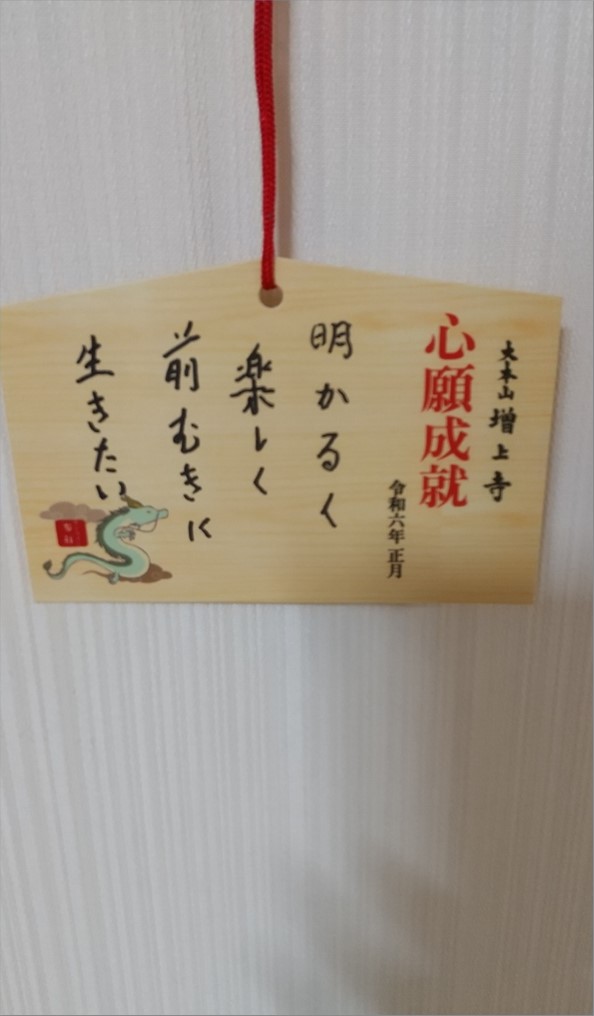 大本山 増上寺
心願成就
令和六年 正月
明かるく
楽しく
前むきに
生きたい